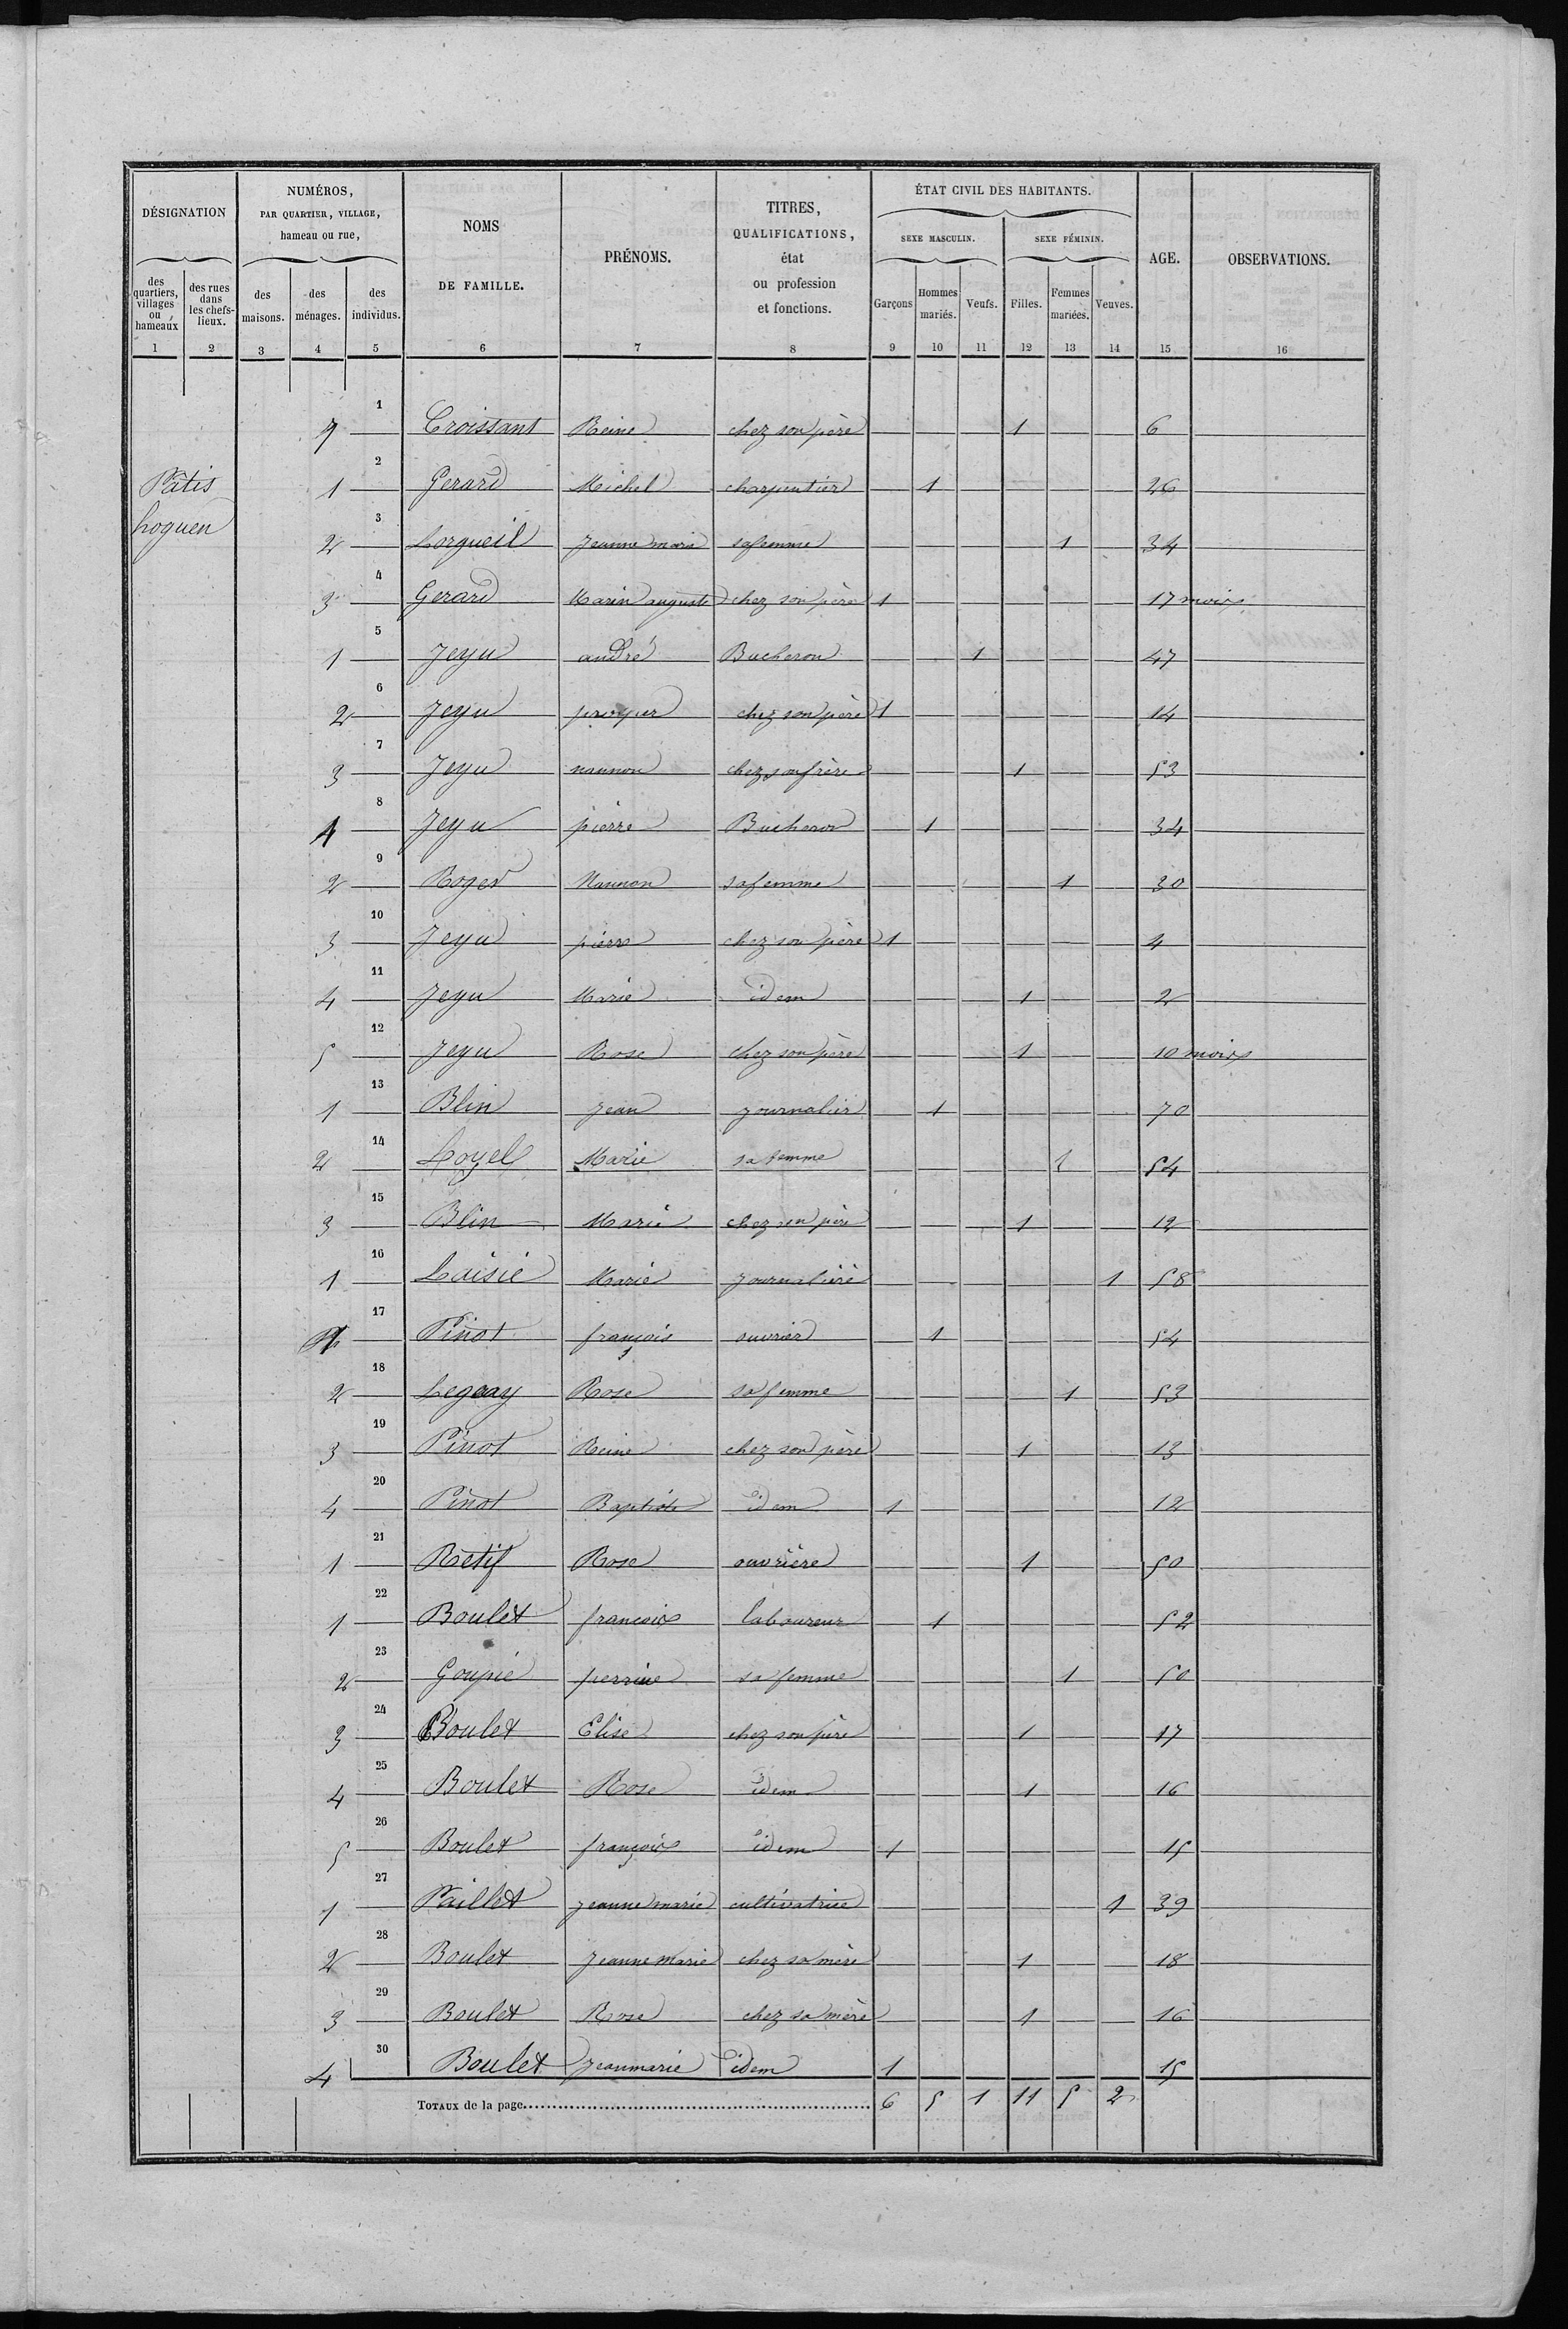 DÉSIGNATION | NUMÉROS, PAR QUARTIER, VILLAGE, hameau ou rue, | NOMS DE FAMILLE. | PRÉNOMS. | TITRES, QUALIFICATIONS, état ou profession et fonctions. | ÉTAT CIVIL DES HABITANTS. | AGE. | OBSERVATIONS.
SEXE MASCULIN. | SEXE FÉMININ.
des quartiers, villages ou hameaux | des rues dans les chefs-lieux. | des maisons. | des ménages. | des individus. | Garçons | Hommes mariés. | Veufs. | Filles. | Femmes mariées. | Veuves.
1 | 2 | 3 | 4 | 5 | 6 | 7 | 8 | 9 | 10 | 11 | 12 | 13 | 14 | 15 | 16
7 | 1 | Croissant | Reine | chez son père | 1 | 6
Pâtis | 1 | 2 | Gerard | Michel | charpentier | 1 | 26
hoguen | 2 | 3 | Lorgueil | Jeanne marie | sa femme | 1 | 34
3 | 4 | Gerard | Marin auguste | chez son père | 1 | 17 mois
1 | 5 | Jeyu | andré | Bucheron | 1 | 47
2 | 6 | Jeyu | prosper | chez son père | 1 | 14
3 | 7 | Jeyu | nannon | chez son frère | 1 | 53
1 | 8 | Jeyu | pierre | Bucheron | 1 | 34
2 | 9 | Roger | Nannon | sa femme | 1 | 30
3 | 10 | Jeyu | pierre | chez son père | 1 | 4
4 | 11 | Jeyu | Marie | idem | 1 | 2
5 | 12 | Jeyu | Rose | chez son père | 1 | 10 mois
1 | 13 | Blin | Jean | journalier | 1 | 70
2 | 14 | Loyel | Marie | sa femme | 1 | 54
3 | 15 | Blin | Marie | chez son père | 1 | 12
1 | 16 | Laisié | Marie | journalière | 1 | 58
17 | Pinot | françois | ouvrier | 1 | 54
2 | 18 | Legeay | Rose | sa femme | 1 | 53
3 | 19 | Pinot | Reine | chez son père | 1 | 13
4 | 20 | Pinot | Baptiste | idem | 1 | 12
1 | 21 | Retif | Rose | ouvrière | 1 | 50
1 | 22 | Boulet | francois | laboureur | 1 | 52
2 | 23 | Goupié | perrine | sa femme | 1 | 50
3 | 24 | Boulet | Elise | chez son père | 1 | 17
4 | 25 | Boulet | Rose | idem | 1 | 16
5 | 26 | Boulet | françois | idem | 1 | 15
1 | 27 | Paillet | jeanne marie | cultivatrice | 1 | 39
2 | 28 | Boulet | Jeanne Marie | chez sa mère | 1 | 18
3 | 29 | Boulet | Rose | chez sa mère | 1 | 16
4 | 30 | Boulet | Jean marie | idem | 1 | 15
TOTAUX de la page | 6 | 5 | 1 | 11 | 5 | 2